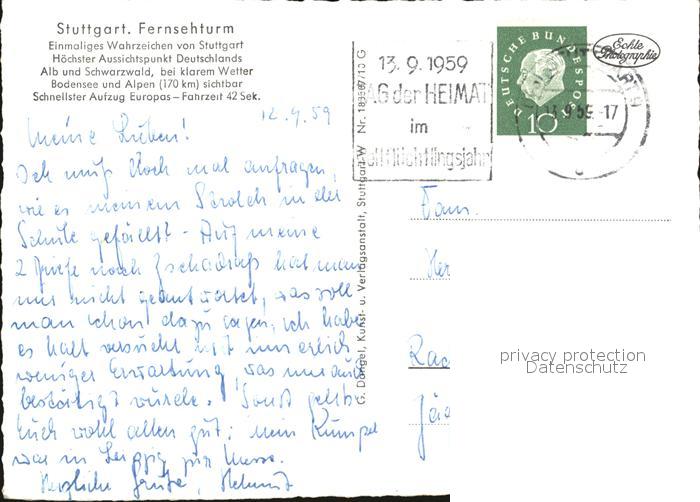 Stuttgart. Fernsehturm
Einmaliges Wahrzeichen von Stuttgart
Höchster Aussichtspunkt Deutschlands
Alb und Schwarzwald, bei klarem Wetter
Bodensee und Alpen (170 km) sichtbar
Schnellster Aufzug Europas – Fahrzeit 42 Sek.
12.9.59
Meine Lieben!
Ich muß doch mal anfragen,
wie es meinem in der
Schule gefällt - Auf meine
2 Briefe nach Zschadraß hat man
mir nicht geantwortet, was soll
man schon dazu sagen, ich habe
es halt versucht mit
weniger Erwartung, was nun auch
bestätigt wurde. Sonst geht's
Euch wohl allen gut; mein Kumpel
war in Leipzig zur Messe.
Herzliche Grüße, Helmut
G. Dangel, Kunst- u. Verlagsanstalt, Stuttgart-W Nr. 15 G
13.9.1959
TAG der HEIMAT
im
Weltflüchtlingsjahr
DEUTSCHE BUNDESPOST
10
9.59.-17
Echte
Photographie
Fam.
Her
Rad
privacy protection
Datenschutz